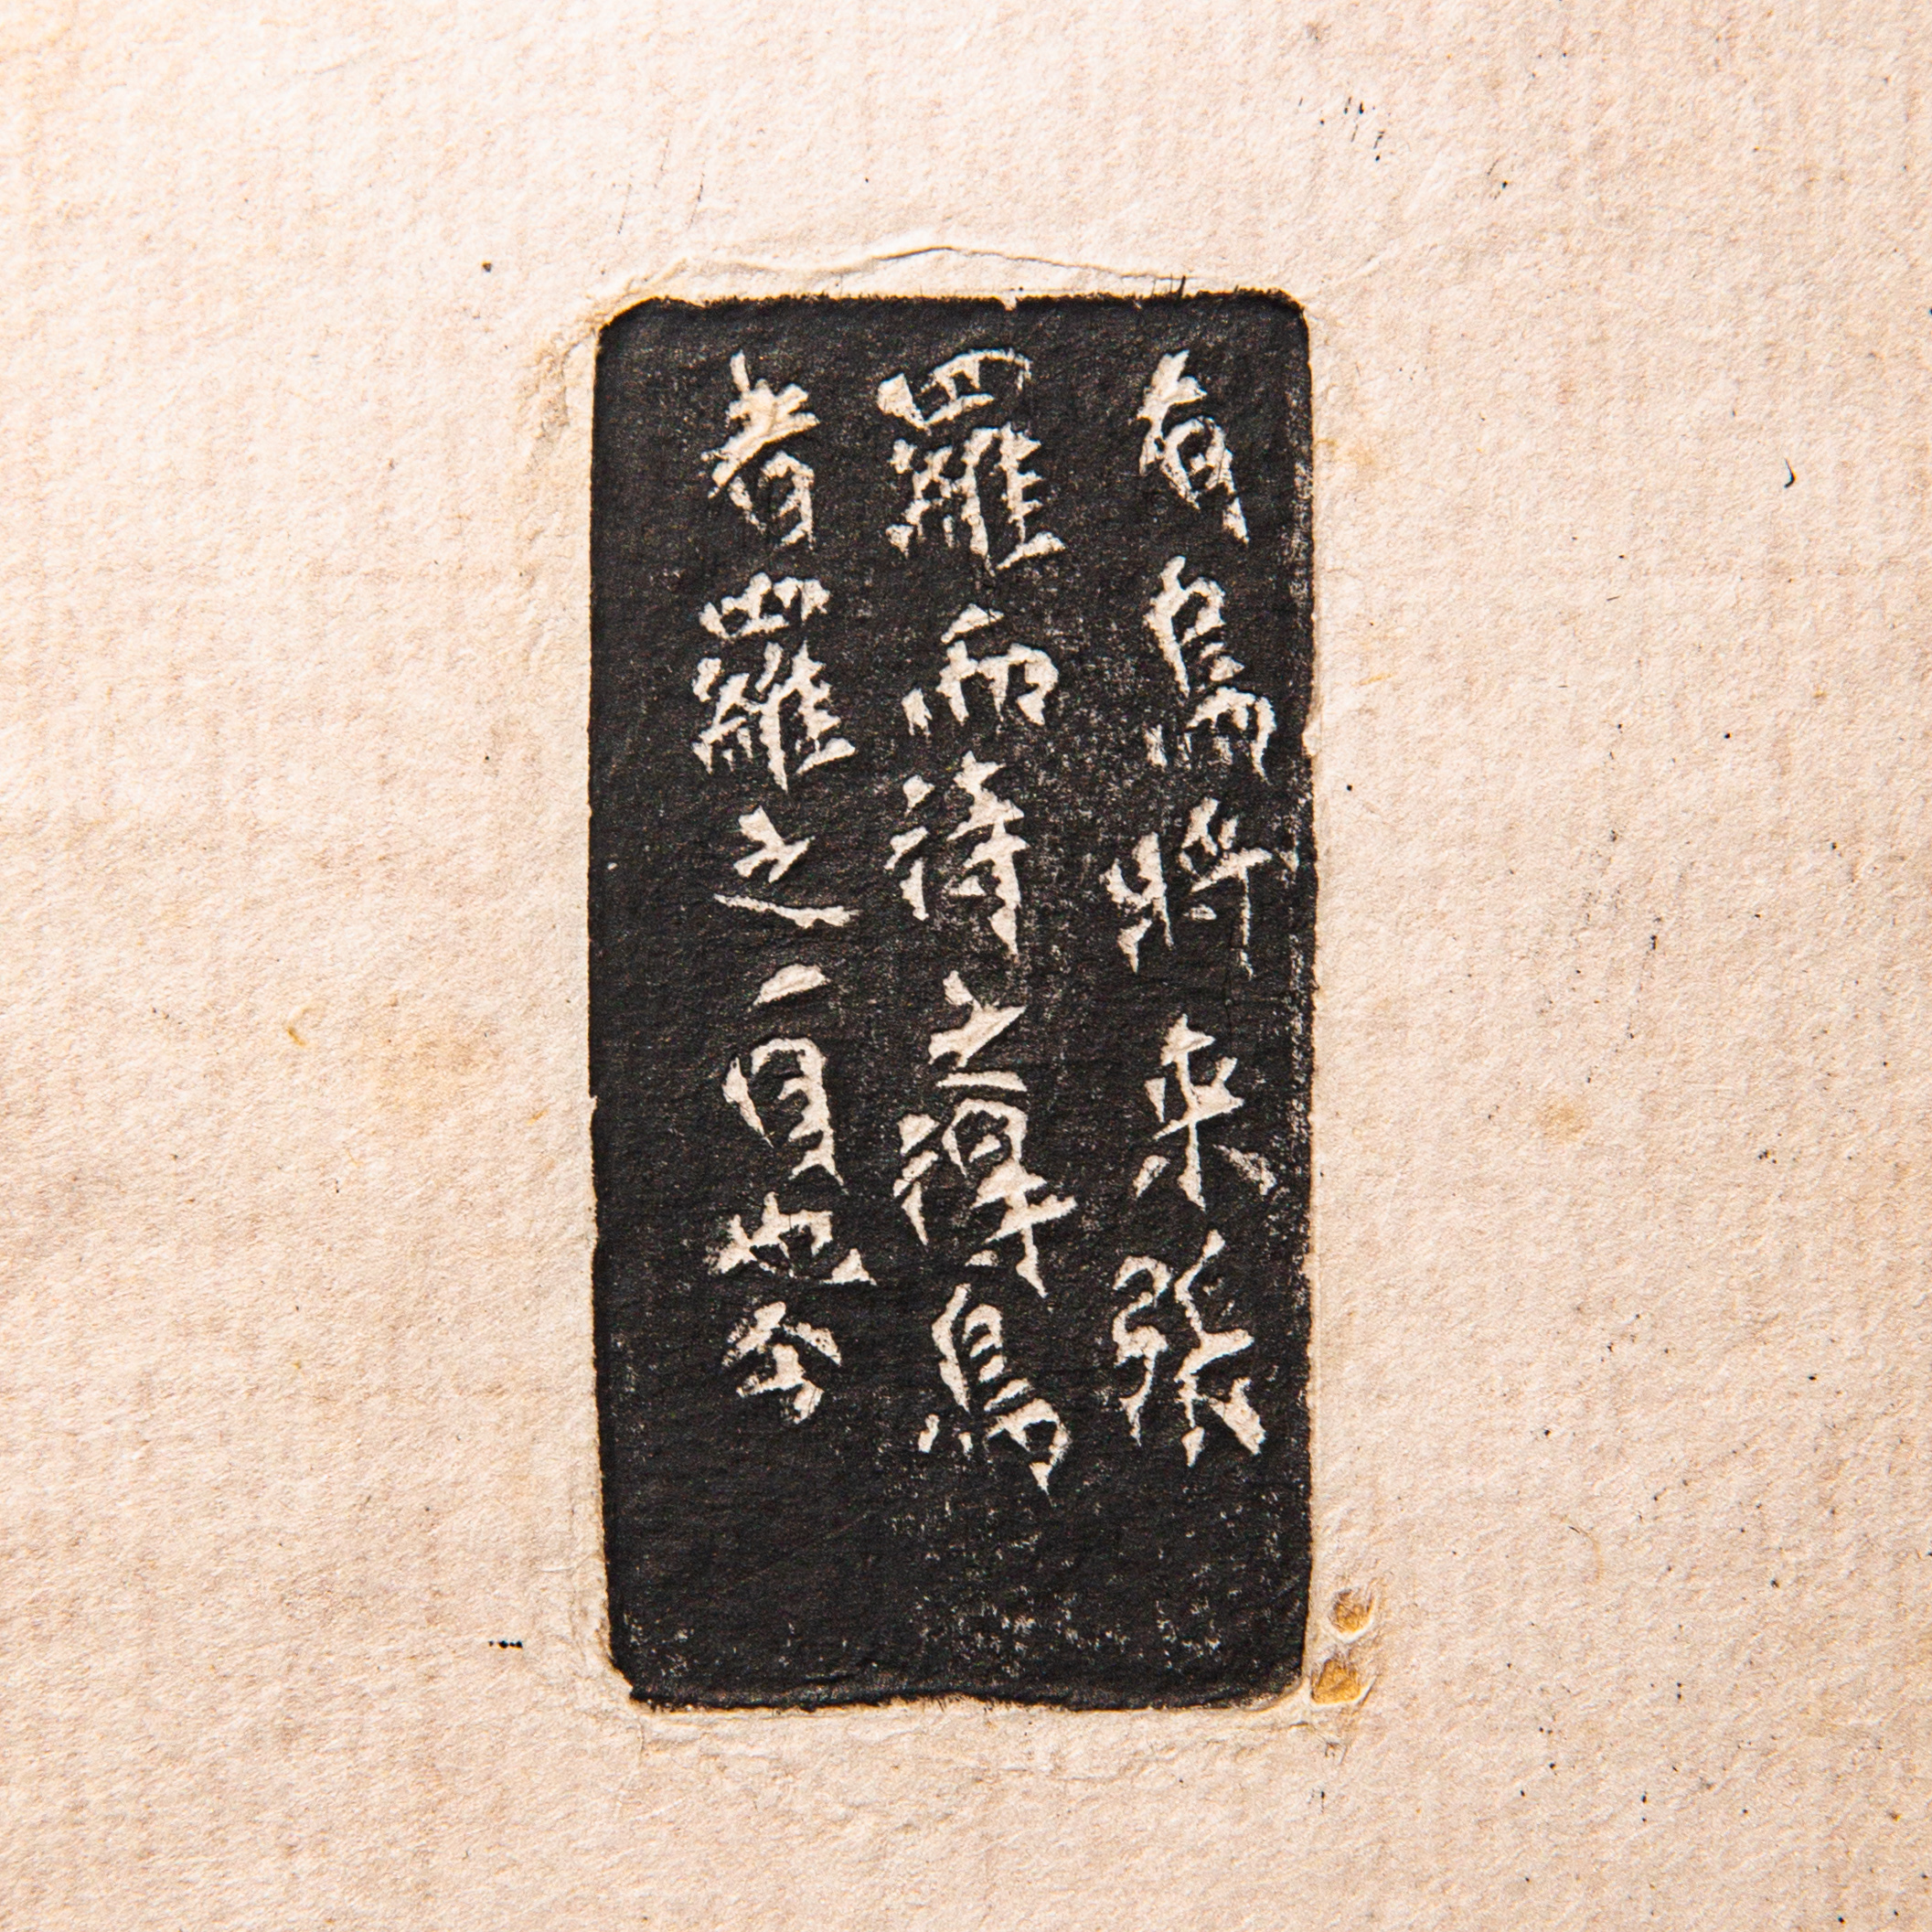 有鳥將來張
羅而待之得鳥
者羅之一目也今